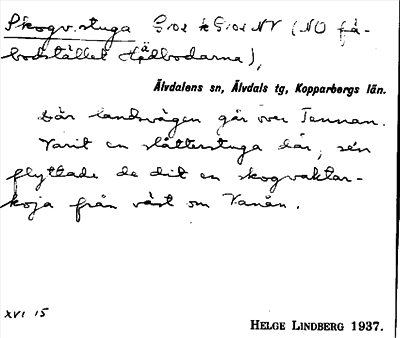 Skogv.stuga (NO fä-
bodstället Hädbodarna),
Älvdalens sn, Älvdals tg, Kopparbergs län.
där landsvägen går över Tennan.
Varit en slåtterstuga där, sén
flyttade de dit en skogvaktar-
koja från väst om Vanån.
XVI 15
HELGE LINDBERG 1937.